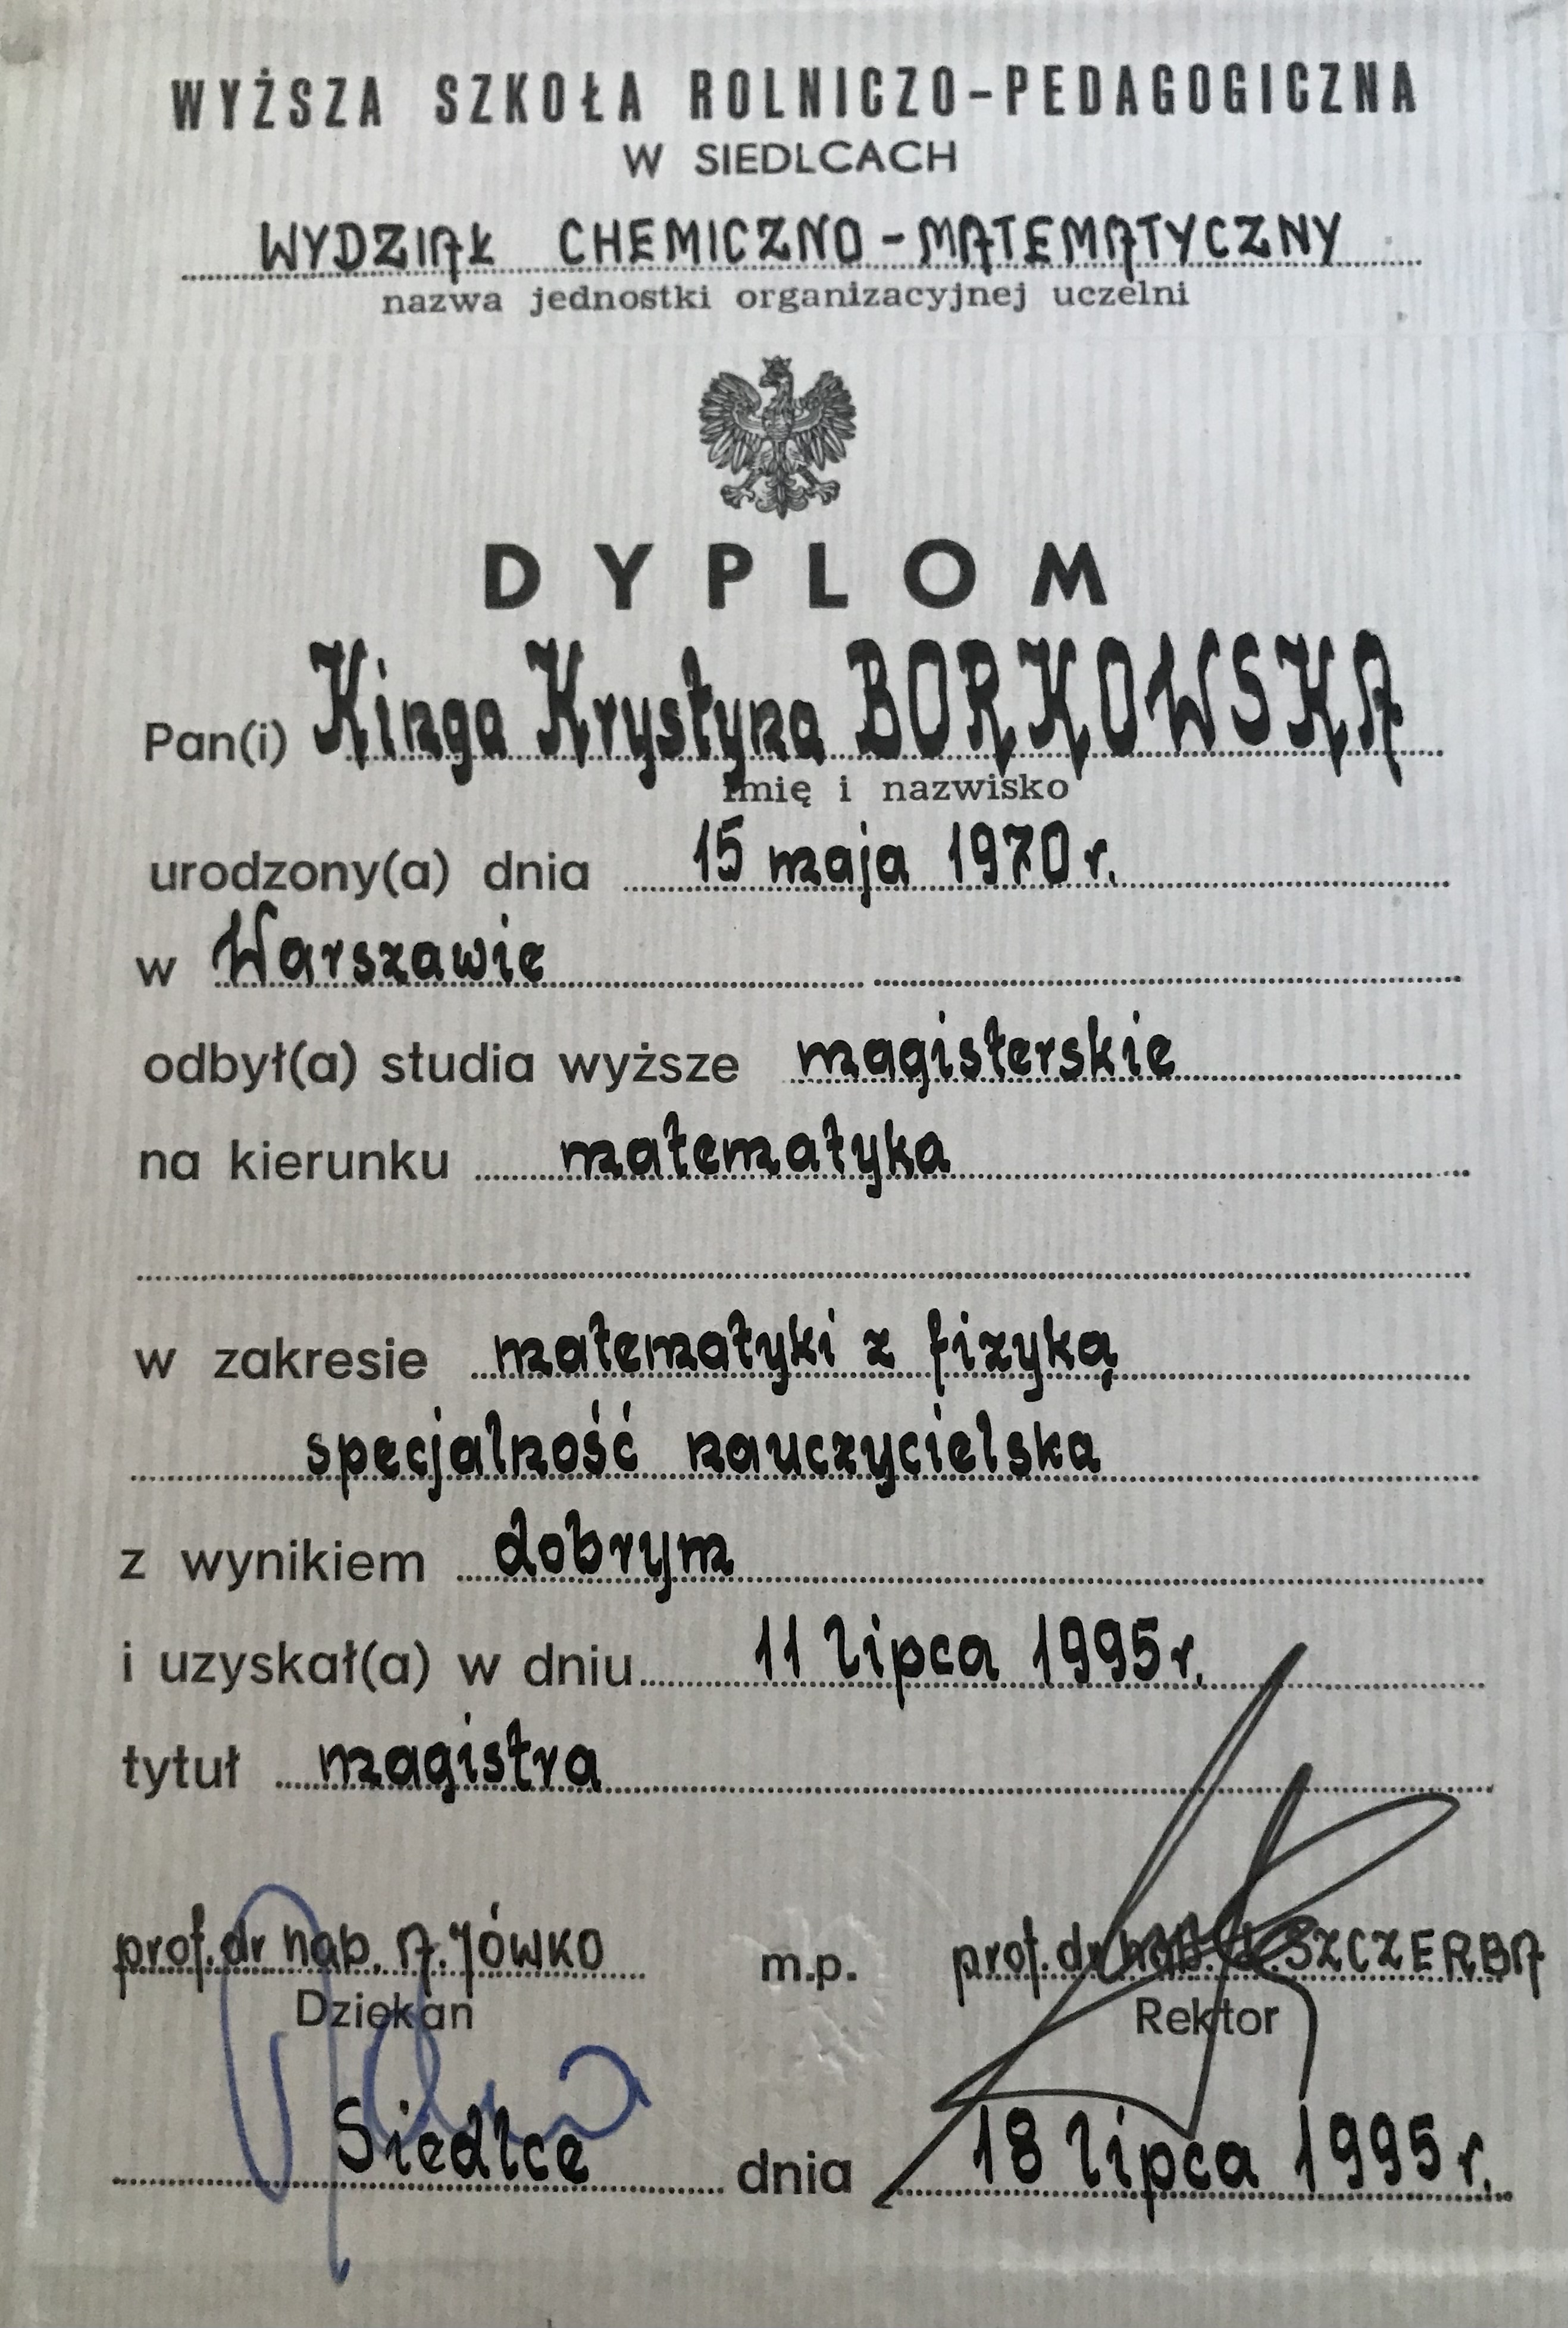 WYŻSZA SZKOŁA ROLNICZO-PEDAGOGICZNA
W SIEDLCACH
WYDZIAŁ CHEMICZNO-MATEMATYCZNY
nazwa jednostki organizacyjnej uczelni
DYPLOM
Pan(i) Kinga Krystyna BORKOWSKA
imię i nazwisko
urodzony(a) dnia 15 maja 1970 r.
w Warszawie
odbył(a) studia wyższe magisterskie
na kierunku matematyka
w zakresie matematyki z fizyką
specjalność nauczycielska
z wynikiem dobrym
i uzyskał(a) w dniu 11 lipca 1995 r.
tytuł magistra
prof. dr hab. A. JÓWKO m.p. prof. dr hab. SZCZERBA
Dziekan Rektor
Siedlce dnia 18 lipca 1995 r.